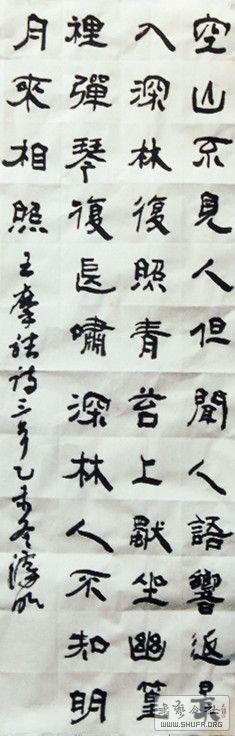 空山不見人但聞人語響返景
入深林復照青苔上獸坐幽篁
裡彈琴復長嘯深林人不知明
月來相照
王摩詰詩三首乙未冬
WWW.SHUFA.ORG